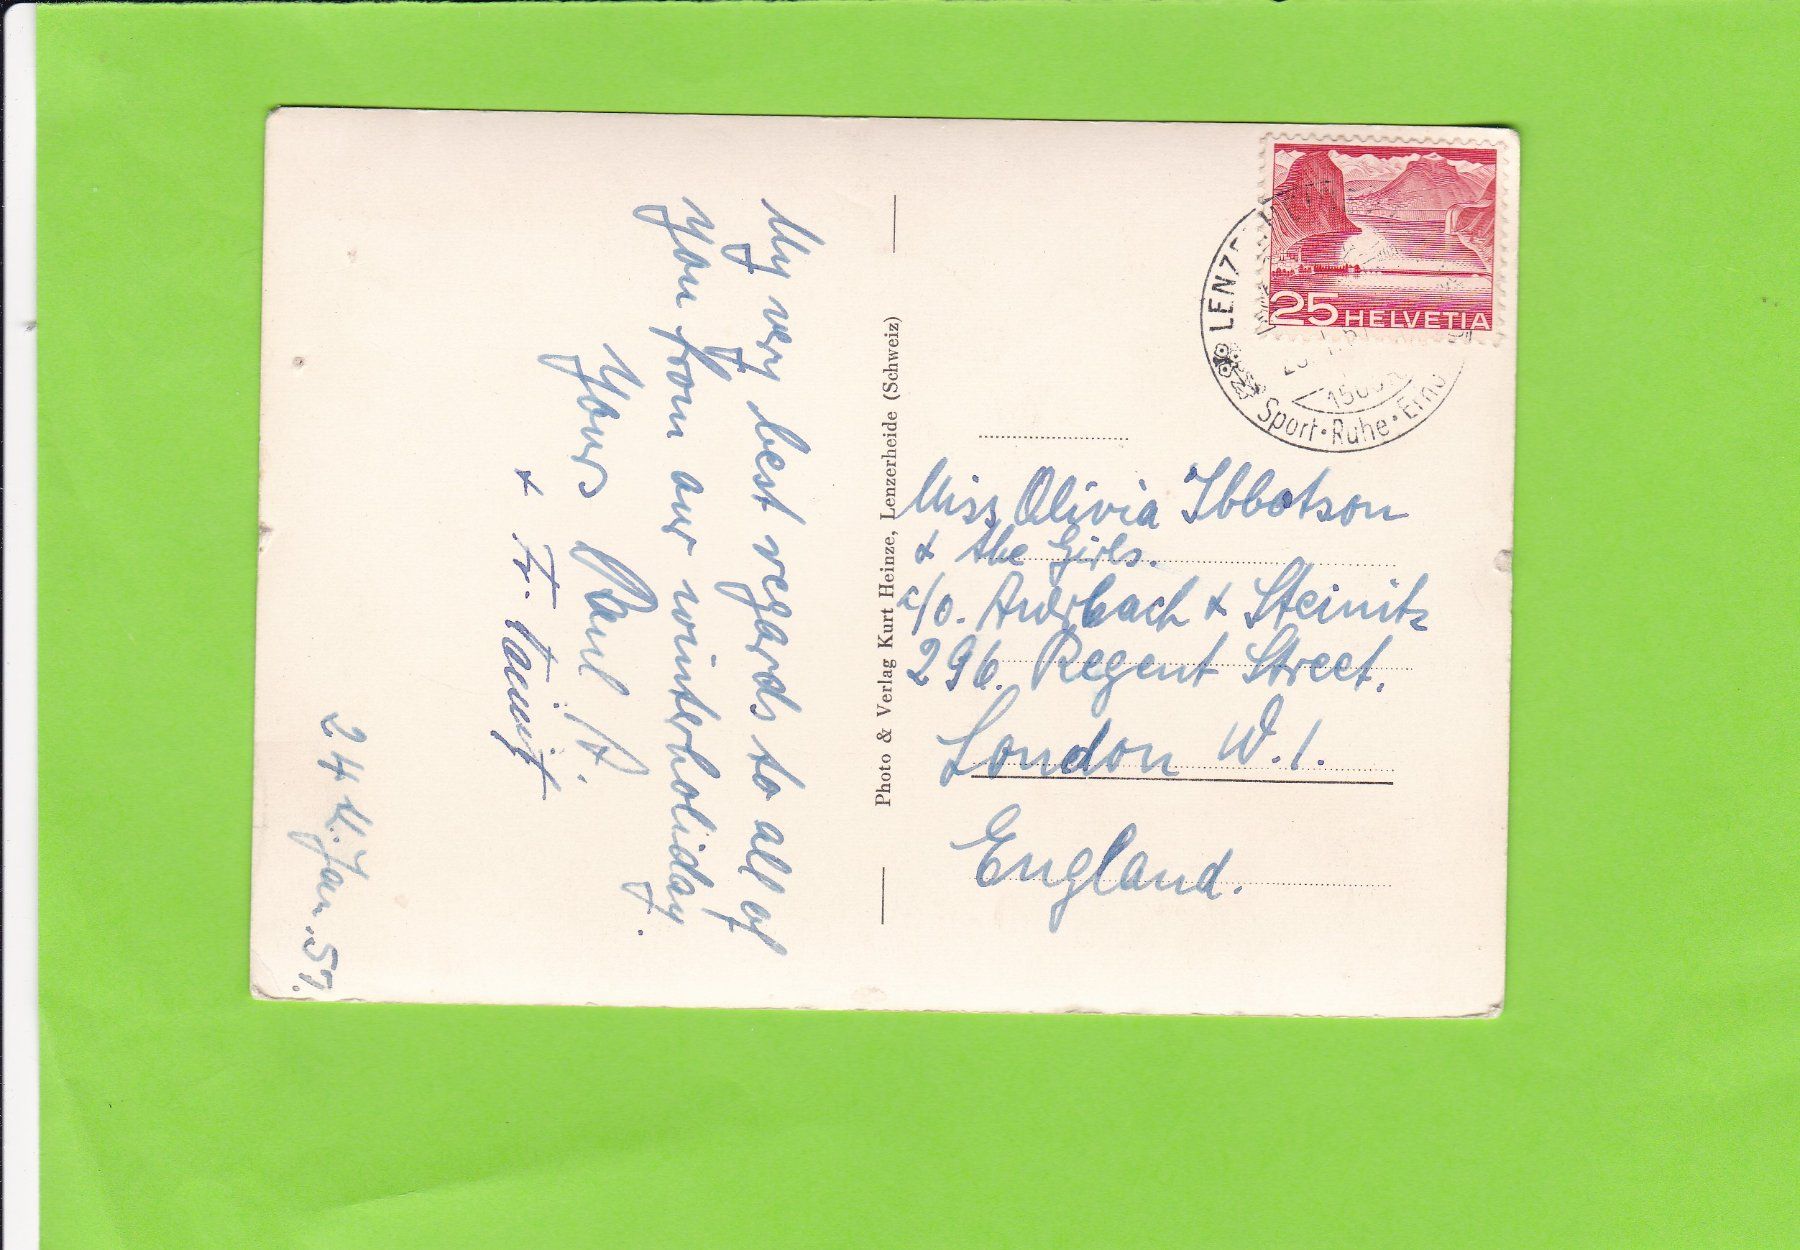 My very best regards to all of
you from our winterholiday.
Yours Paul A.
&
24 Jan. 51.
Photo & Verlag Kurt Heinze, Lenzerheide (Schweiz)
25 HELVETIA
LENZE
1500
Sport · Ruhe ·
Miss Olivia Ibbotson
& the Girls.
c/o. Auerbach & Steinitz
296. Regent Street.
London W.1.
England.